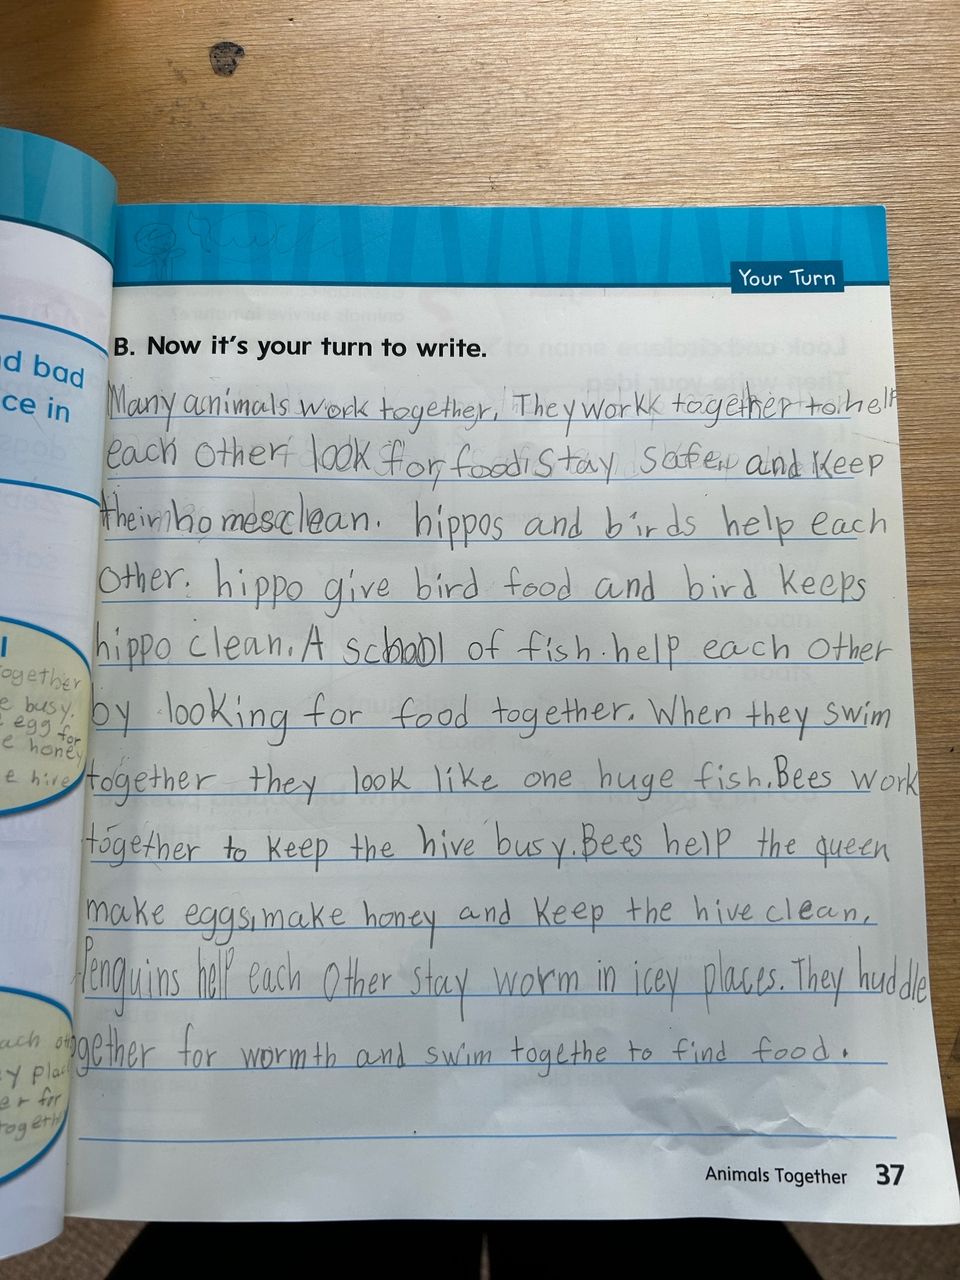 Your Turn
B. Now it's your turn to write.
Many animals work together. They workk together to help
each other look for food, stay safe, and keep
their homes clean. hippos and birds help each
other. hippo give bird food and bird keeps
hippo clean. A school of fish help each other
by looking for food together. When they swim
together they look like one huge fish. Bees work
together to keep the hive busy. Bees help the queen
make eggs, make honey and keep the hive clean.
Penguins help each other stay worm in icey places. They huddle
together for wormth and swim togethe to find food.
Animals Together 37
d bad
ce in
ogether
e busy.
egg for
e honey
e hive
ach oth
y plac
er for
togeth